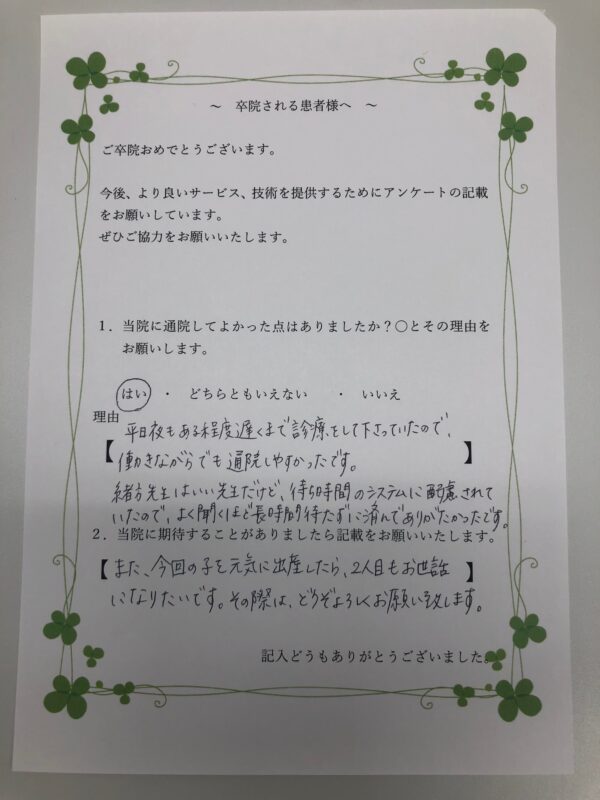 ～　卒院される患者様へ　～
ご卒院おめでとうございます。
今後、より良いサービス、技術を提供するためにアンケートの記載
をお願いしています。
ぜひご協力をお願いいたします。
1．当院に通院してよかった点はありましたか？○とその理由を
お願いします。
はい　・　どちらともいえない　・　いいえ
理由
【平日夜もある程度遅くまで診療をして下さっていたので、
働きながらでも通院しやすかったです。】
緒方先生はいい先生だけど、待ち時間のシステムに配慮されて
いたので、よく聞くほど長時間待たずに済んでありがたかったです。
2．当院に期待することがありましたら記載をお願いいたします。
【また、今回の子を元気に出産したら、2人目もお世話】
になりたいです。その際は、どうぞよろしくお願い致します。
記入どうもありがとうございました。